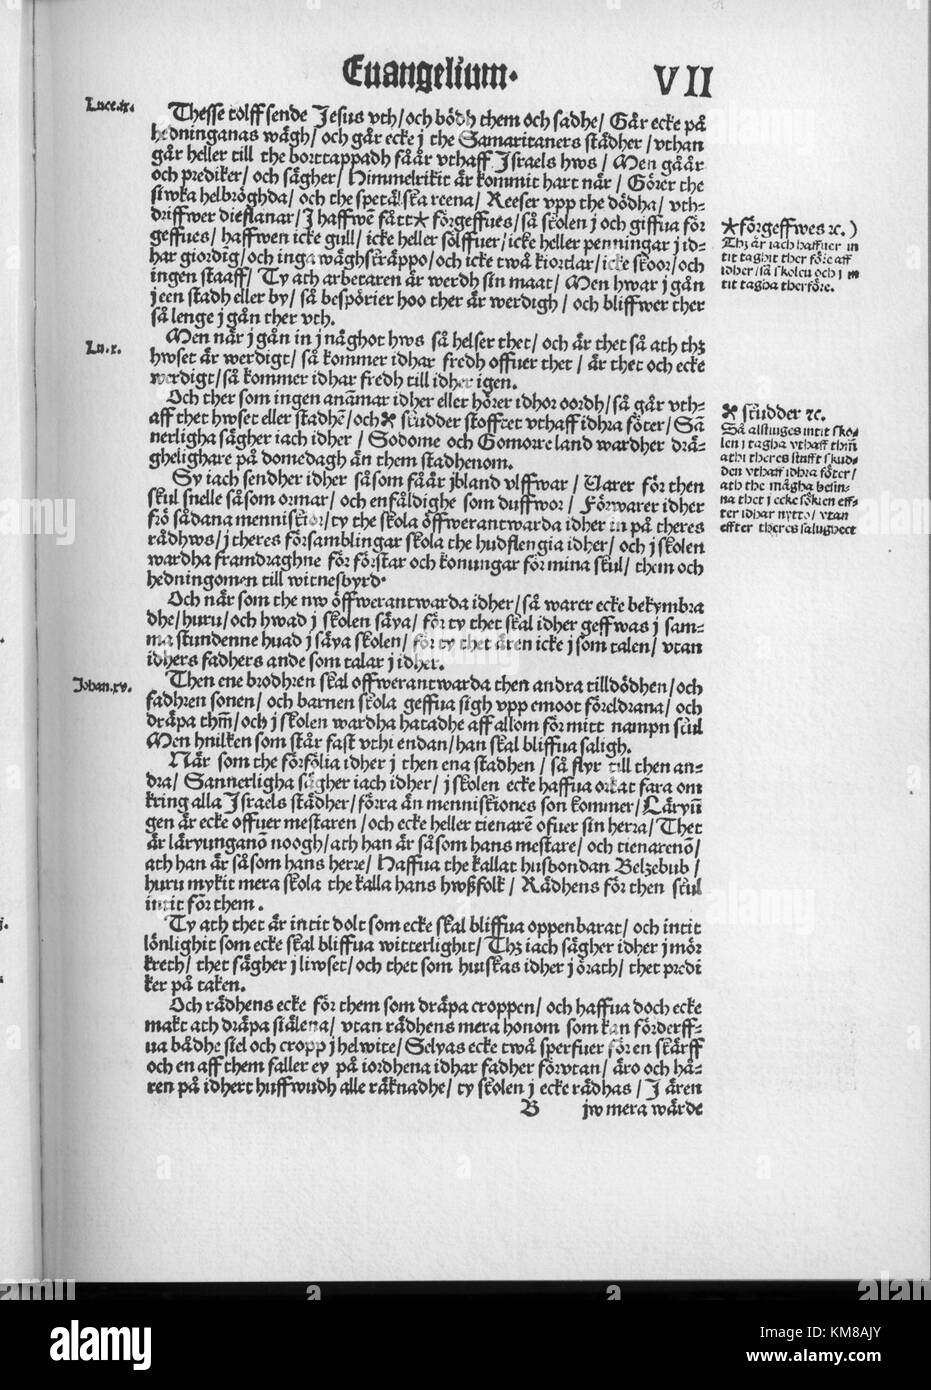 Euangelium.
VII
Luce.ix.
Thesse tolff sende Jesus vth/ och bödh them och sadhe/ Går ecke på
hedninganas wägh/ och går ecke j the Samaritaners städher/ vthan
går heller till the borttappadh fåår vthaff Israels hws/ Men gåår
och prediker/ och sägher/ Himmelrikit är kommit hart när/ Görer the
siwka helbröghda/ och the spetälska reena/ Reeser vpp the dödha/ vth-
driffwer dieflanar/ J haffwē fått* förgeffues/ så skolen j och giffua för
geffues/ haffwen icke gull/ icke heller sölffuer/ icke heller penningar j id-
har giordig/ och inga wäghskräppo/ och icke twå kiortlar/ icke skoor/ och
ingen staaff/ Ty ath arbetaren är werdh sin maat/ Men hwar j gån
j een stadh eller by/ så bespörier hoo ther är werdigh/ och bliffwer ther
så lenge j gån ther vth.
*förgeffwes ꝛc.)
Thꝫ är iach haffuer in
tit taghit ther före aff
idher/ så skolen och j in
tit tagha ther före.
Lu.x.
Men när j gån in j någhot hws så helser thet/ och är thet så ath thꝫ
hwset är werdigt/ så kommer idhar fredh offuer thet/ är thet och ecke
werdigt/ så kommer idhar fredh till idher igen.
Och ther som ingen anāmar idher eller hörer idhor oordh/ så går vth-
aff thet hwset eller stadhē/ och※ studder stoffret vthaff idhra föter/ Sā
nerligha sägher iach idher/ Sodome och Gomorre land wardher drä-
ghelighare på domedagh än them stadhenom.
※ studder ꝛc.
Så alstinges intit sko-
len j tagha vthaff thm̄
ath i theres stufft skud-
den vthaff idhra föter/
ath the mågha besin-
na thet j ecke sökien eff-
ter idhar nytto/ vtan
effter theres salugheet
Sy iach sendher idher såsom fåår jbland vlffwar/ Varer för then
skul snelle såsom ormar/ och enfåldighe som duffwor/ Förwarer idher
frö sådana menniskior/ ty the skola öffwerantwarda idher in på theres
rädhws/ j theres församblingar skola the hudflengia idher/ och j skolen
wardha framdraghne för förstar och konungar för mina skul/ them och
hedningomen till witnesbyrd.
Och när som the nw öffwerantwarda idher/ så warer ecke bekymbra
dhe/ huru/ och hwad j skolen säya/ för ty thet skal idher geffwas j sam-
ma stundenne huad j säya skolen/ för ty thet ären icke j som talen/ vtan
idhers fadhers ande som talar j idher.
Johan.xv.
Then ene brodhren skal offwerantwarda then andra till dödhen/ och
fadhren sonen/ och barnen skola geffua sigh vpp emoot föreldrana/ och
dräpa thm̄/ och j skolen wardha hatadhe aff allom för mitt nampn scul
Men hwilken som står fast vthi endan/ han skal bliffua saligh.
När som the förfölia idher j then ena stadhen/ så flyr till then an-
dra/ Sannerligha sägher iach idher/ j skolen ecke haffua orkat fara om
kring alla Israels städher/ förra än menniskiones son kommer/ Läryūn
gen är ecke offuer mestaren/ och ecke heller tienarē ofuer sin herra/ Thet
är läryunganō noogh/ ath han är såsom hans mestare/ och tienarenō/
ath han är såsom hans herre/ Haffua the kallat husbondan Belzebub/
huru mykit mera skola the kalla hans hwßfolk/ Rädhens för then scul
intit för them.
Ty ath thet är intit dolt som ecke skal bliffua oppenbarat/ och intit
lönlighit som ecke skal bliffua witterlighit/ Thꝫ iach sägher idher j mör
kreth/ thet sägher j liwset/ och thet som hwiskas idher j örath/ thet predi
ker på taken.
Och rädhens ecke för them som dräpa croppen/ och haffua doch ecke
makt ath dräpa siälena/ vtan rädhens mera honom som kan förderff-
ua bådhe siel och cropp j helwite/ Selyas ecke twå sperfuer för en skärff
och en aff them faller ey på iordhena idhar fadher förwtan/ äro och hå-
ren på idhert huffwudh alle räknadhe/ ty skolen j ecke rädhas/ J ären
B jw mera wärde
alamy
Image ID: KM8AJY
www.alamy.com